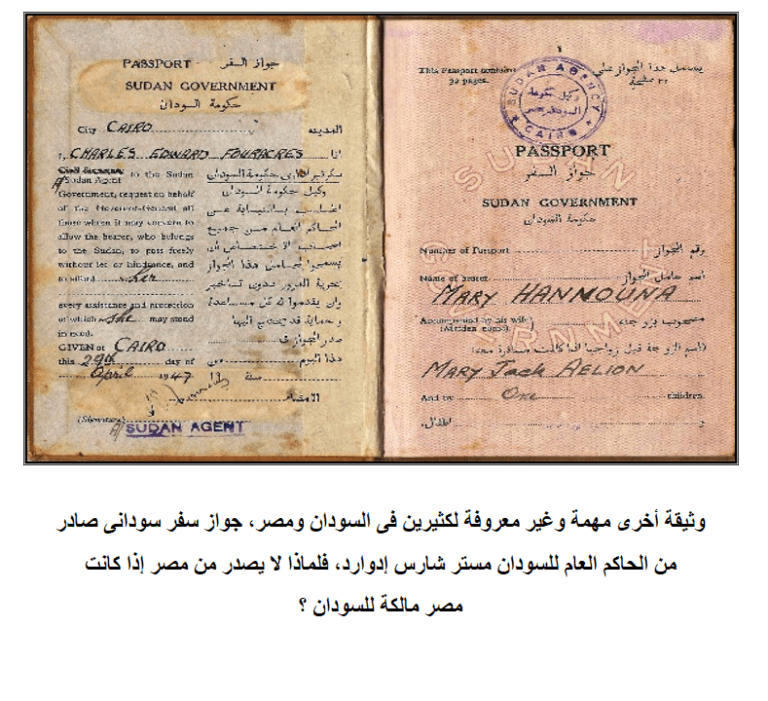 PASSPORT جواز السفر
SUDAN GOVERNMENT
حكومة السودان
City CAIRO المدينه
I, CHARLES EDWARD FOURACRES انا
Civil Secretary to the Sudan سكرتير ادارى حكومة السودان
A/ Sudan Agent وكيل حكومة السودان
Government, request on behalf
of the Governor-General all
those whom it may concern to الحاكم العام من جميع
allow the bearer, who belongs
to the Sudan, to pass freely يسمحوا لحامل هذا الجواز
without let or hindrance, and بحرية المرور بدون تأخير
to afford her
وان يقدموا له كل مساعدة
every assistance and protection
of which she may stand و حماية قد يحتاج اليها
in need.
GIVEN at CAIRO صدر الجواز فى
this 29th day of هذا اليوم من
April 1947 سنة ١٩
الامضاء
(Signature)
A/ SUDAN AGENT
1
This Passport contains يشتمل هذا الجواز على
32 pages. ٣٢ صفحة
SUDAN AGENCY
وكيل حكومة
السودان بمصر
CAIRO
PASSPORT
جواز السفر
SUDAN GOVERNMENT
حكومة السودان
Number of Passport رقم الجواز
Name of bearer اسم حامل الجواز
MARY HANMOUNA
Accompanied by his wife مصحوب بزوجته
(Maiden name).
(اسم الزوجة قبل زواجها اذا كانت مسافرة معه)
MARY Jack AELION
And by One children.
و اطفال.
وثيقة أخرى مهمة وغير معروفة لكثيرين فى السودان ومصر، جواز سفر سودانى صادر
من الحاكم العام للسودان مستر شارس إدوارد، فلماذا لا يصدر من مصر إذا كانت
مصر مالكة للسودان ؟